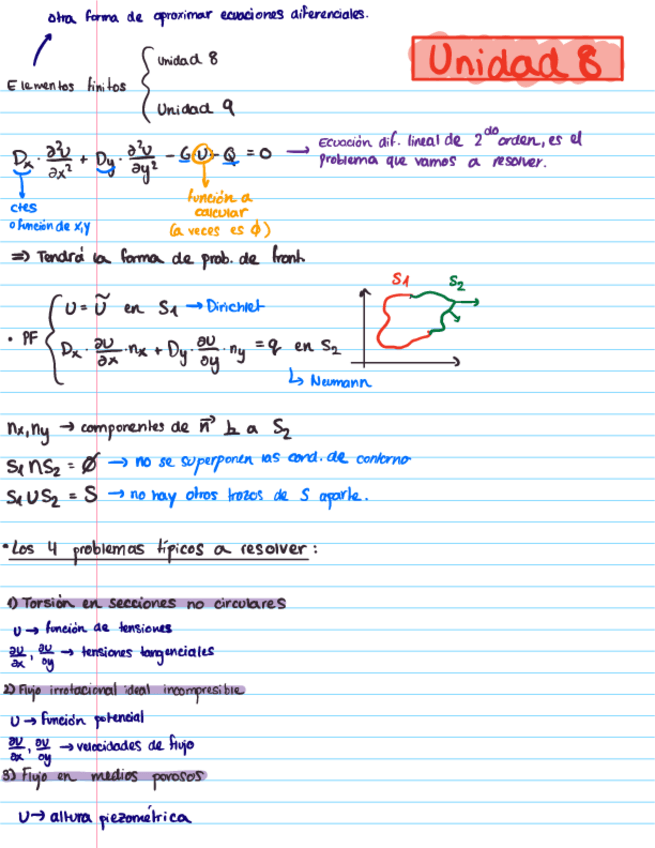 otra forma de aproximar ecuaciones diferenciales.
Unidad 8
Elementos finitos { Unidad 8
Unidad 9
Dx · ∂²U/∂x² + Dy · ∂²U/∂y² - GU - Q = 0 → Ecuación dif. lineal de 2do orden, es el
problema que vamos a resolver.
ctes
o función de x,y
función a
calcular
(a veces es ϕ)
⇒ Tendrá la forma de prob. de front.
S1 S2
· PF { U = Ũ en S1 → Dirichlet
Dx · ∂U/∂x · nx + Dy · ∂U/∂y · ny = q en S2
↳ Neumann
nx, ny → componentes de n⃗ ⊥ a S2
S1 ∩ S2 = ∅ → no se superponen las cond. de contorno
S1 ∪ S2 = S → no hay otros trozos de S aparte.
· Los 4 problemas típicos a resolver:
1) Torsión en secciones no circulares
U → función de tensiones
∂U/∂x, ∂U/∂y → tensiones tangenciales
2) Flujo irrotacional ideal incompresible
U → función potencial
∂U/∂x, ∂U/∂y → velocidades de flujo
3) Flujo en medios porosos
U → altura piezométrica